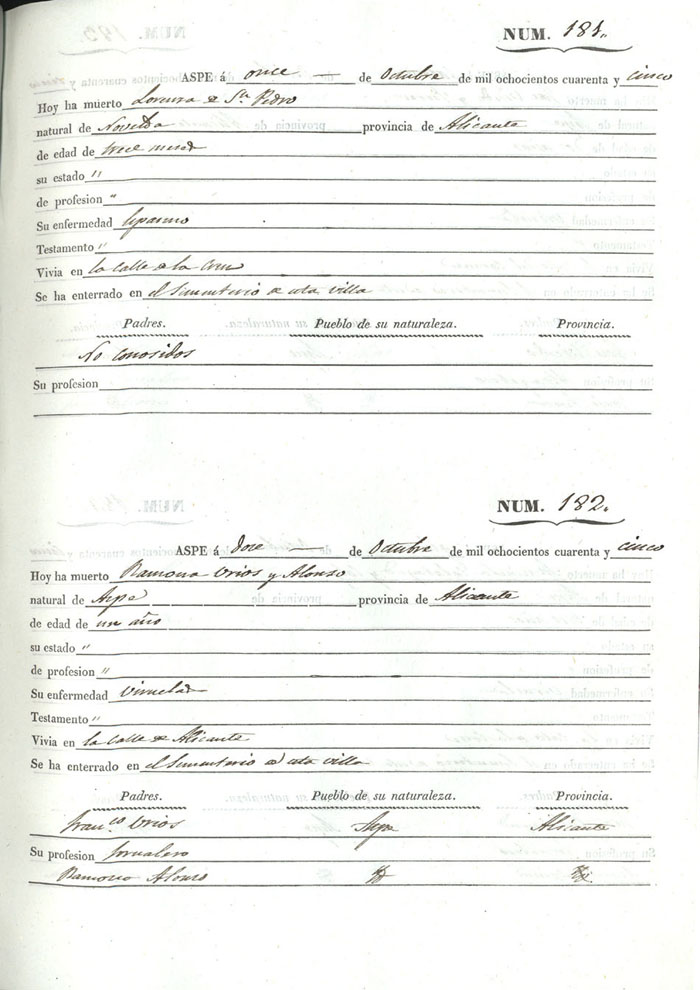 NUM. 181.
ASPE á once de Octubre de mil ochocientos cuarenta y cinco
Hoy ha muerto Lorenza de Sn. Pedro
natural de Novelda provincia de Alicante
de edad de trece meses
su estado "
de profesion "
Su enfermedad
Testamento "
Vivia en la Calle de la Cruz
Se ha enterrado en el Simenterio de esta villa
Padres. Pueblo de su naturaleza. Provincia.
No Conosidos
Su profesion
NUM. 182.
ASPE á dose de Octubre de mil ochocientos cuarenta y cinco
Hoy ha muerto Ramona Orios y Alonso
natural de Aspe provincia de Alicante
de edad de un año
su estado "
de profesion "
Su enfermedad Viruelas
Testamento "
Vivia en la Calle de Alicante
Se ha enterrado en el Simenterio de esta villa
Padres. Pueblo de su naturaleza. Provincia.
Franco. Orios Aspe Alicante
Su profesion Jornalero
Ramona Alonso